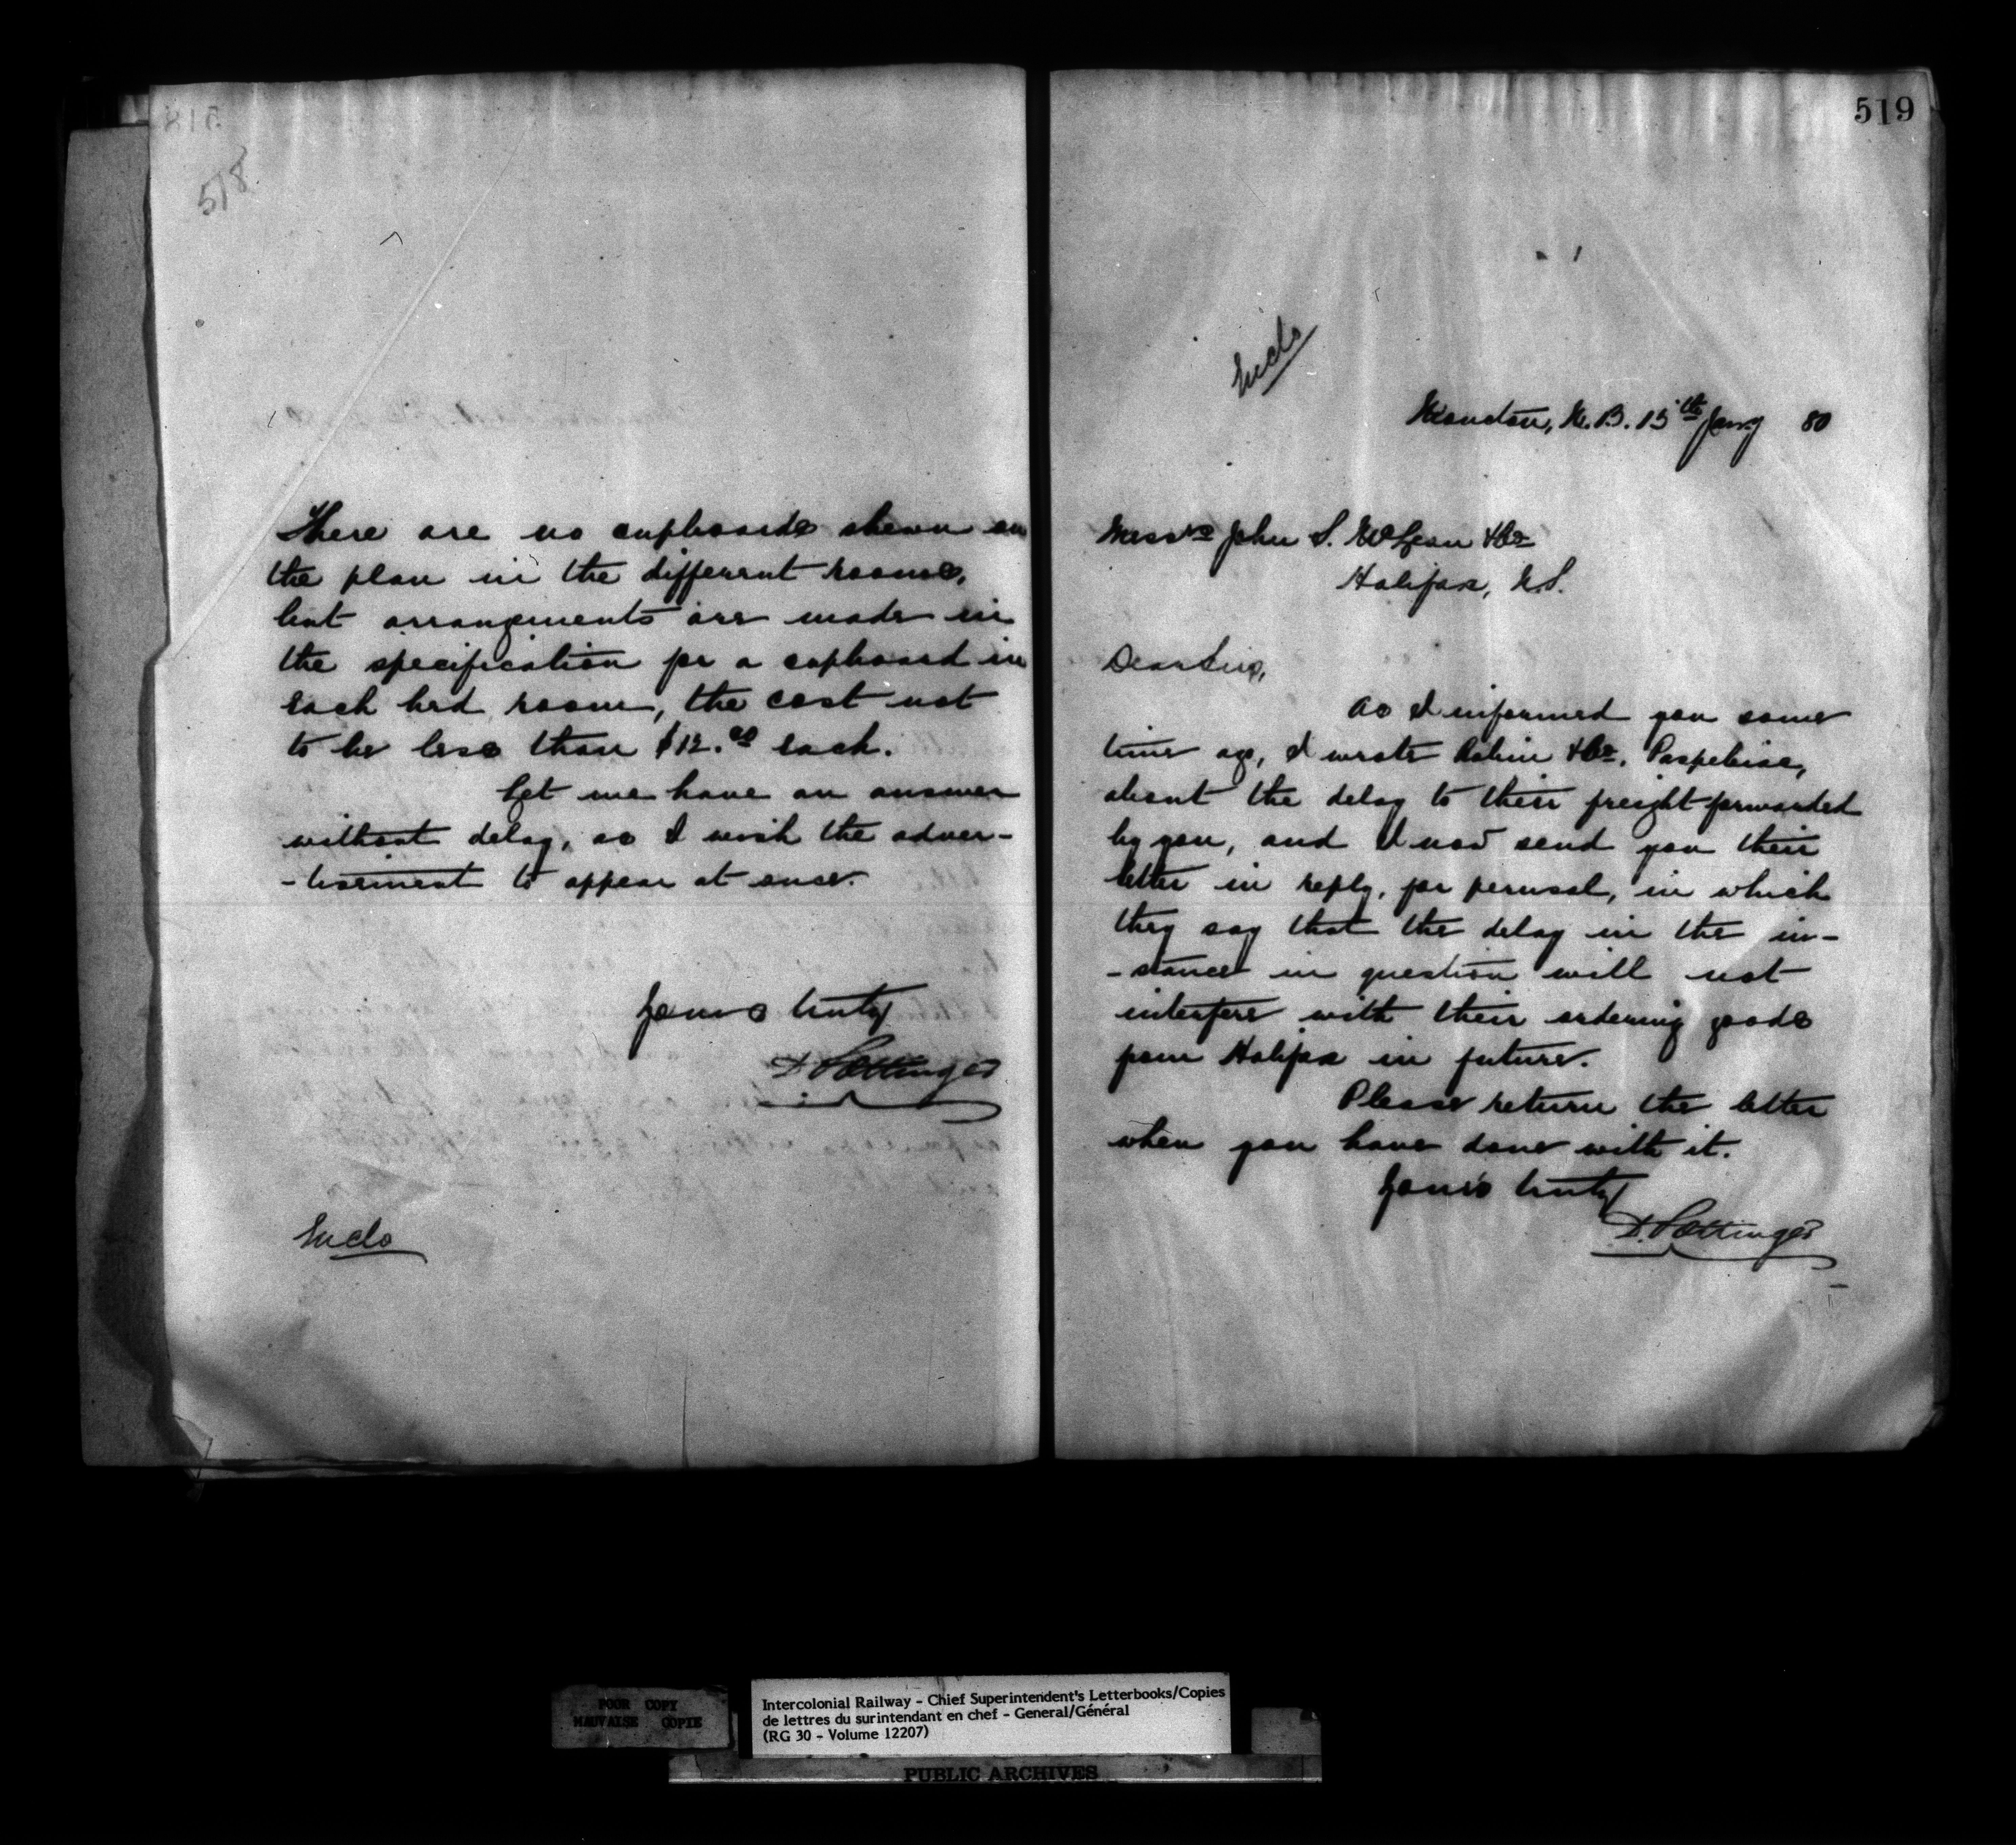 518
There are no cupboards shewn on
the plan in the different rooms,
but arrangements are made in
the specification for a cupboard in
each bed room, the cost not
to be less than $12.00 each.
Let me have an answer
without delay, as I wish the adver-
-tisement to appear at once.
Yours truly
D. Pottinger
Enclo
519
Enclo
Moncton, N.B. 15th Jany 80
Messrs John S. McLean & Co
Halifax, N.S.
Dear Sirs,
As I informed you some
time ago, I wrote Robin & Co. Paspebiac,
about the delay to their freight forwarded
by you, and I now send you their
letter in reply, for perusal, in which
they say that the delay in the in-
-stance in question will not
interfere with their ordering goods
from Halifax in future.
Please return the letter
when you have done with it.
Yours truly
D. Pottinger
POOR COPY
MAUVAISE COPIE
Intercolonial Railway - Chief Superintendent's Letterbooks/Copies
de lettres du surintendant en chef - General/Général
(RG 30 - Volume 12207)
PUBLIC ARCHIVES